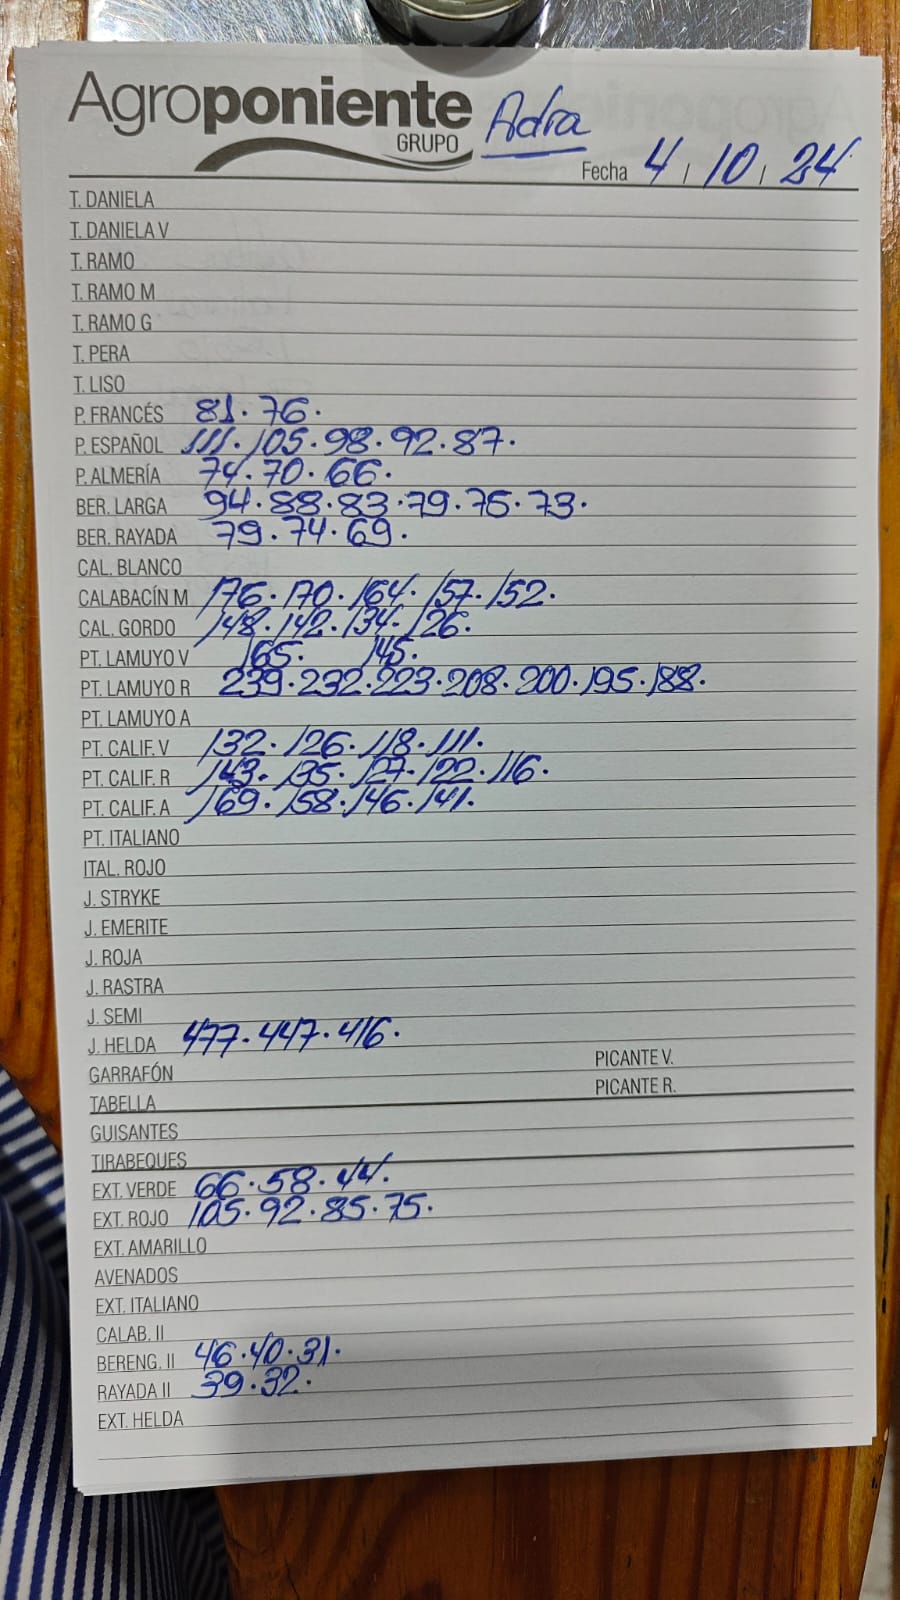 Agroponiente
GRUPO
Adra
Fecha 4 / 10 / 24
T. DANIELA
T. DANIELA V
T. RAMO
T. RAMO M
T. RAMO G
T. PERA
T. LISO
P. FRANCÉS 81. 76.
P. ESPAÑOL 111. 105. 98. 92. 87.
P. ALMERÍA 74. 70. 66.
BER. LARGA 94. 88. 83. 79. 75. 73.
BER. RAYADA 79. 74. 69.
CAL. BLANCO
CALABACÍN M 176. 170. 164. 157. 152.
CAL. GORDO 148. 142. 134. 126.
PT. LAMUYO V 165. 145.
PT. LAMUYO R 239. 232. 223. 208. 200. 195. 188.
PT. LAMUYO A
PT. CALIF. V 132. 126. 118. 111.
PT. CALIF. R 143. 135. 127. 122. 116.
PT. CALIF. A 169. 158. 146. 141.
PT. ITALIANO
ITAL. ROJO
J. STRYKE
J. EMERITE
J. ROJA
J. RASTRA
J. SEMI
J. HELDA 477. 447. 416.
GARRAFÓN PICANTE V.
TABELLA PICANTE R.
GUISANTES
TIRABEQUES
EXT. VERDE 66. 58. 44.
EXT. ROJO 105. 92. 85. 75.
EXT. AMARILLO
AVENADOS
EXT. ITALIANO
CALAB. II
BERENG. II 46. 40. 31.
RAYADA II 39. 32.
EXT. HELDA